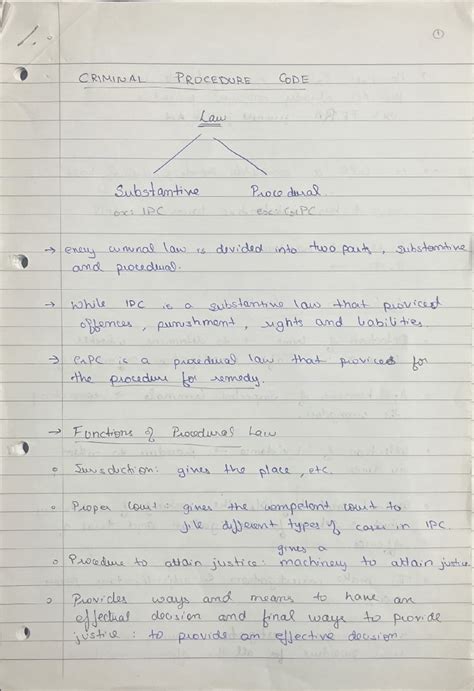 1.
①
CRIMINAL PROCEDURE CODE
Law
Substantive Procedural
ex: IPC ex: CrPC
→ every criminal law is devided into two parts, substantive
and procedural.
→ While IPC is a substantive law that provices
offences, punishment, rights and liabilities.
→ CrPC is a procedural law that provices for
the procedure for remedy.
→ Functions of Procedural Law
o Jurisduction: gives the place, etc.
o Proper Court: gives the competent court to
file different types of cases in IPC.
gives a
o Procedure to attain justice: machinery to attain justice
o Provides ways and means to have an
effectual decision and final ways to provide
justice: to provide an effective decision.